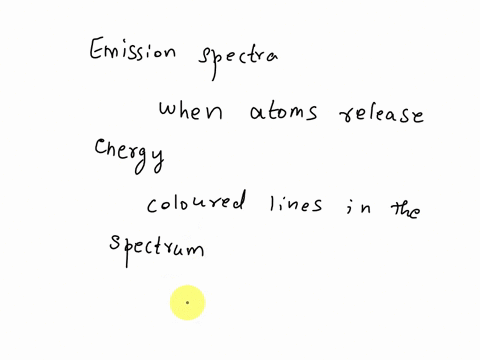 Emission spectra
when atoms release
energy
coloured lines in the
spectrum